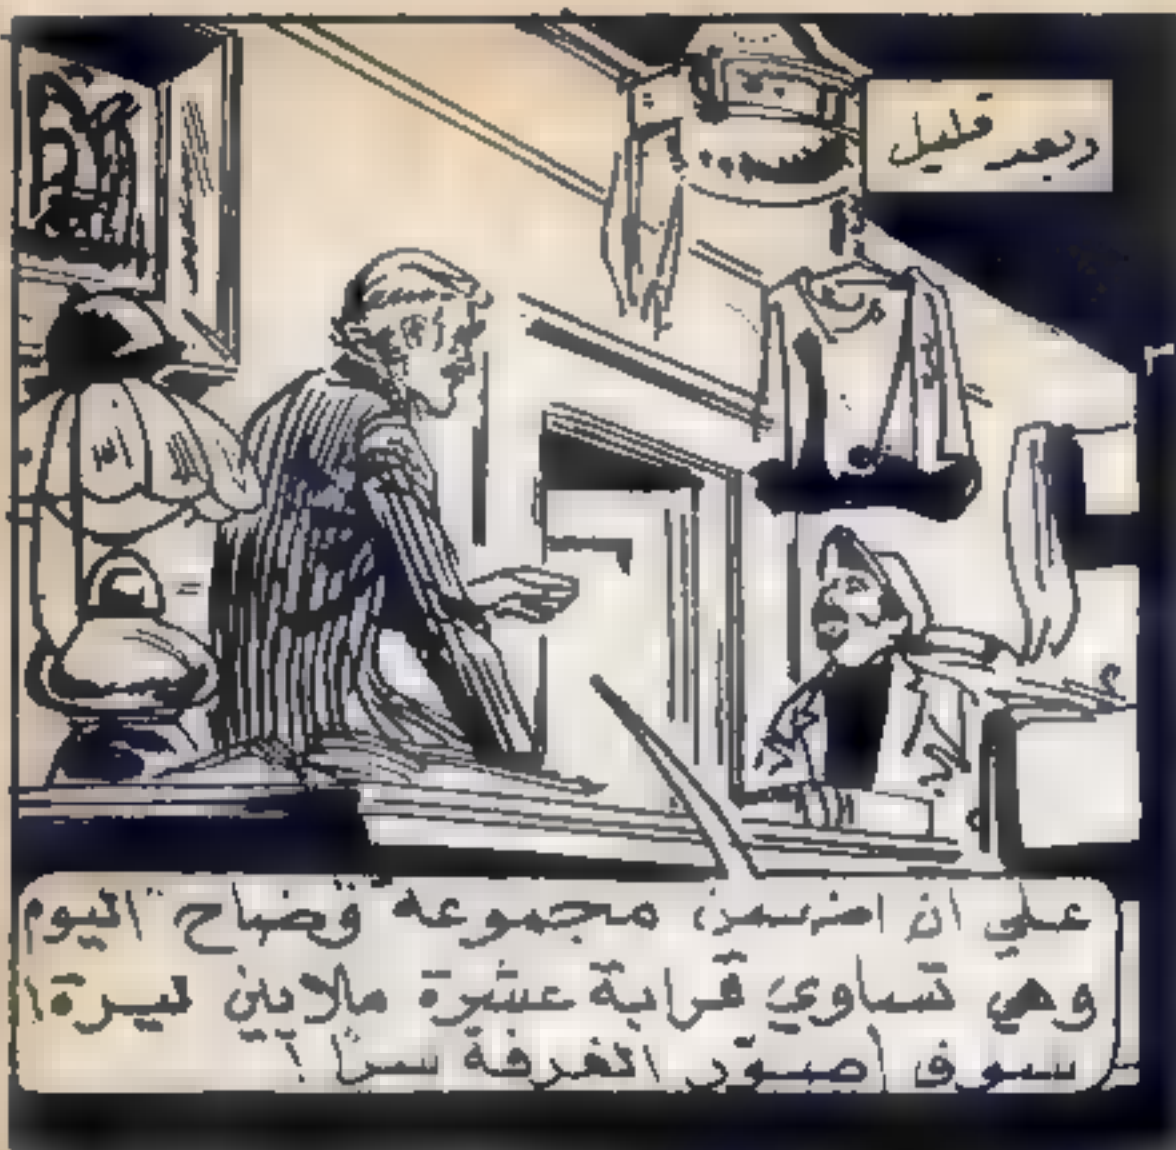 وبعد قليل
علي ان اضمن مجموعة وضاح اليوم
وهي تساوي قرابة عشرة ملايين ليرة!
سوف اصوّر الغرفة سرّا!